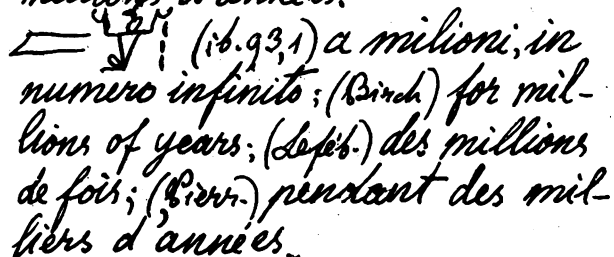 millions d'années.
(ib. 93,1) a milioni, in
numero infinito; (Birch) for mil-
lions of years; (Leféb.) des millions
de fois; (Pierr.) pendant des mil-
liers d'années.